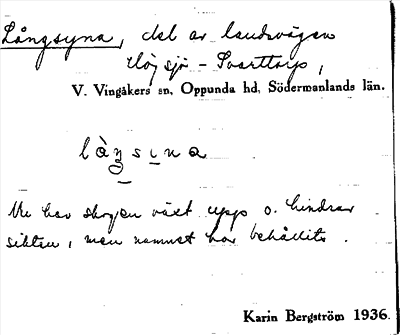 Långsyna, del av landsvägen
Högsjö - Svarttorp,
V. Vingåkers sn, Oppunda hd, Södermanlands län.
là̀ŋsịna
Nu har skogen växt upp o. hindrar
sikten, men namnet har behållits.
Karin Bergström 1936.